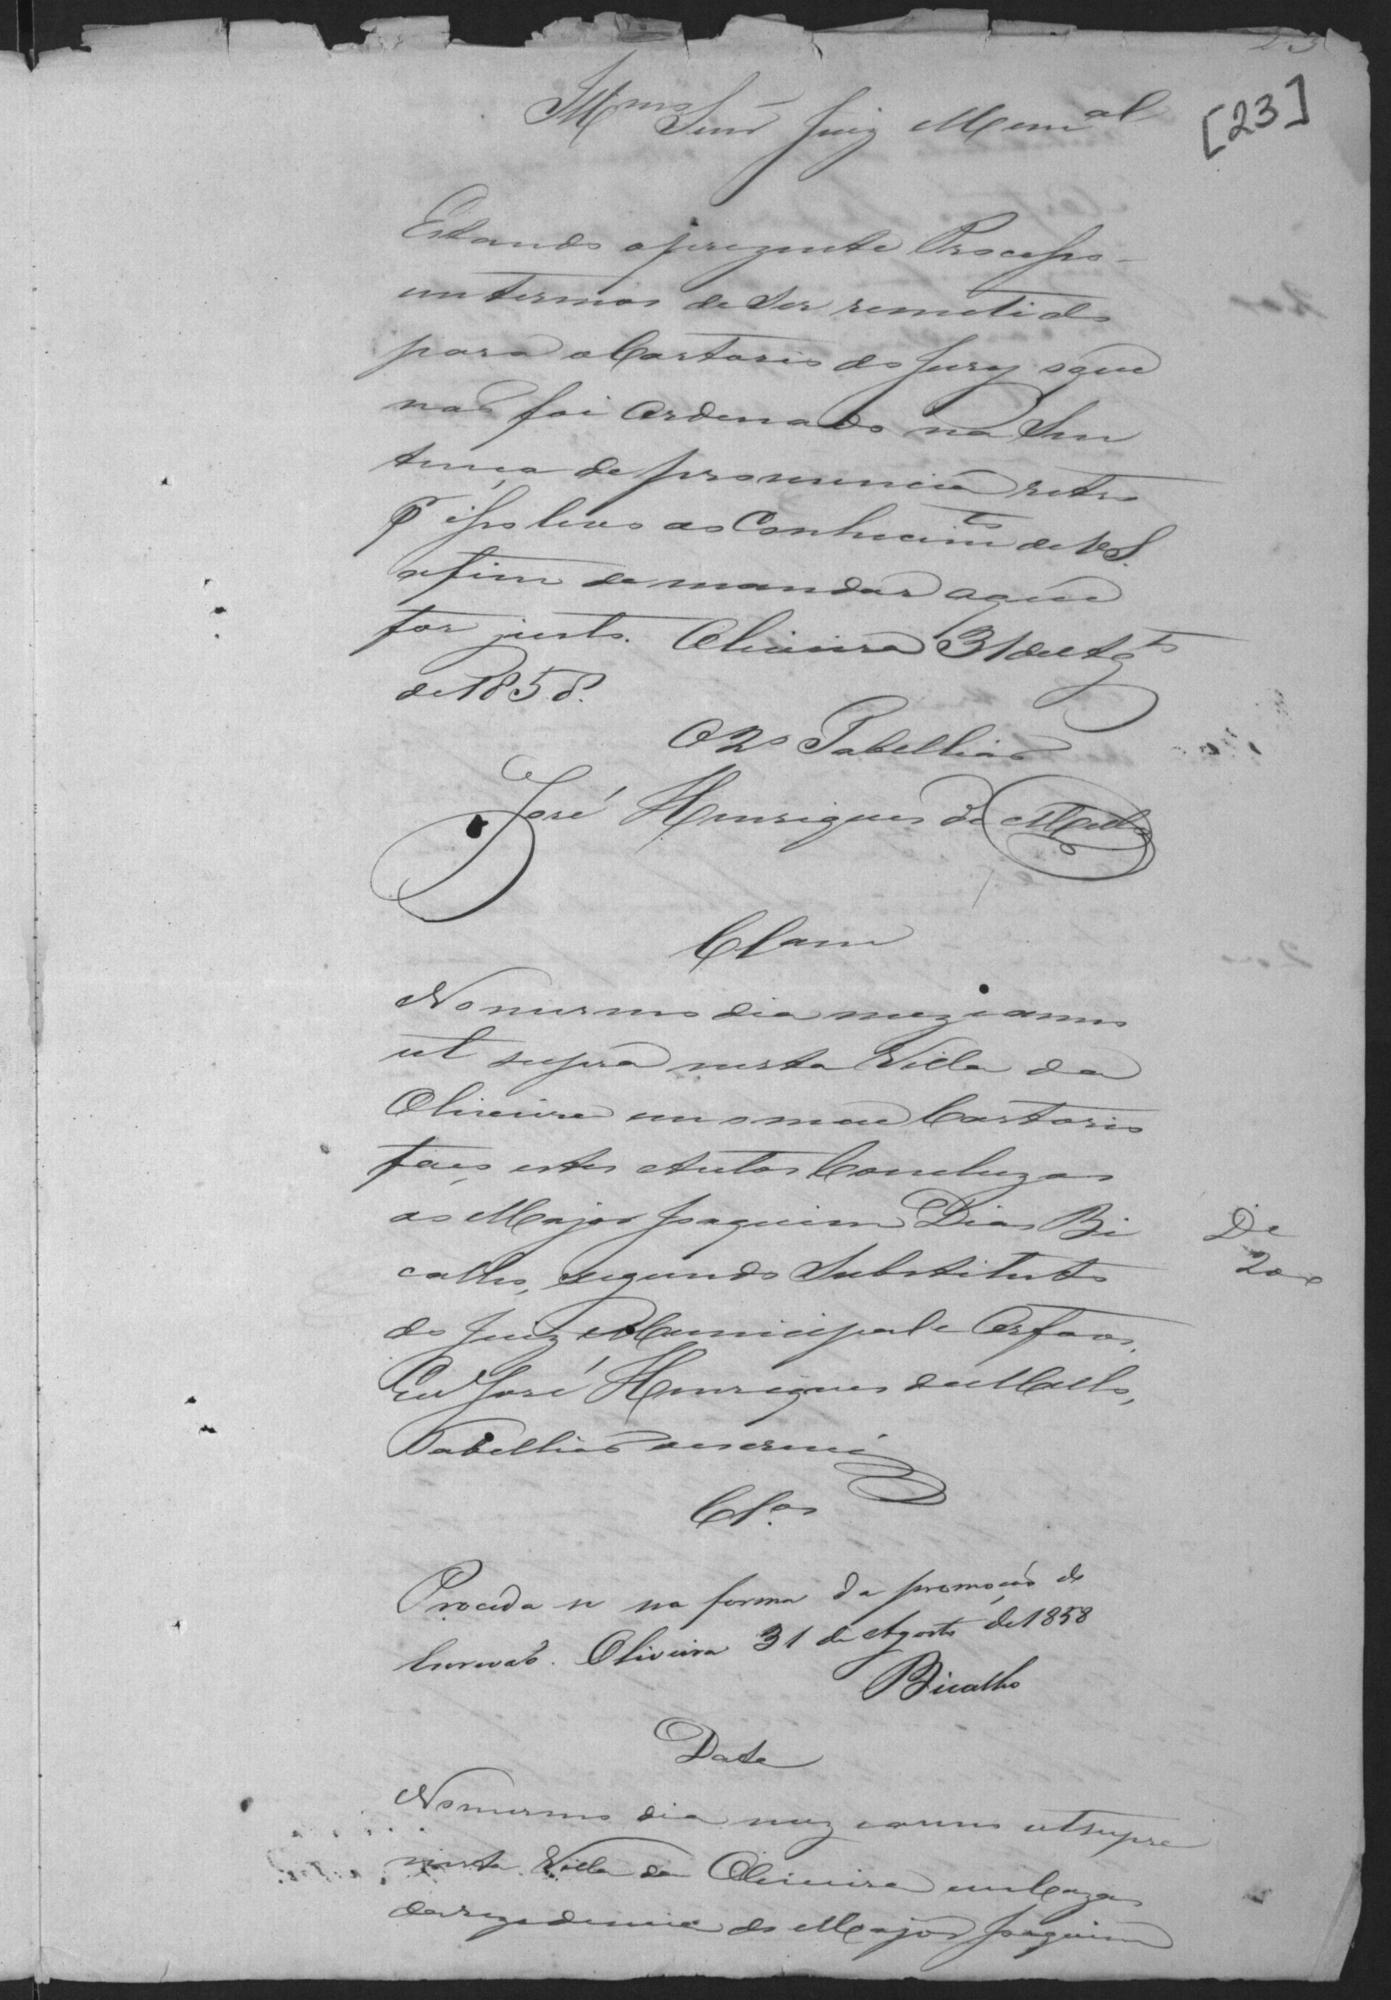 23
[23]
Illmo Senr Juiz Memal
Estando o prezente Processo
em termos de Ser remetido
para o Cartorio do Jury o que
não foi Ordenado na Sen
tença de pronuncia retro
p. isso levo ao Conhecimto de V.S.
afim de mandar o que
for justo. Oliveira 31 de Agto
de 1858.
O 2o Tabellião
José Henriques de Mello
Clam
No mesmo dia mez e anno
ut supra nesta Villa da
Oliveira em o meu Cartorio
faço estes Autos Concluzos
ao Major Joaquim Dias Bi
calho, segundo Substituto
do Juiz Municipal e Orfaos.
Eu José Henriques de Mello,
Tabellião o escrevi
Clos
De
200
Proceda se na forma da promoção do
Escrivão. Oliveira 31 de Agosto de 1858
Bicalho
Data
No mesmo dia mez e anno ut supra
nesta Villa da Oliveira em Caza
da rezidencia do Major Joaquim